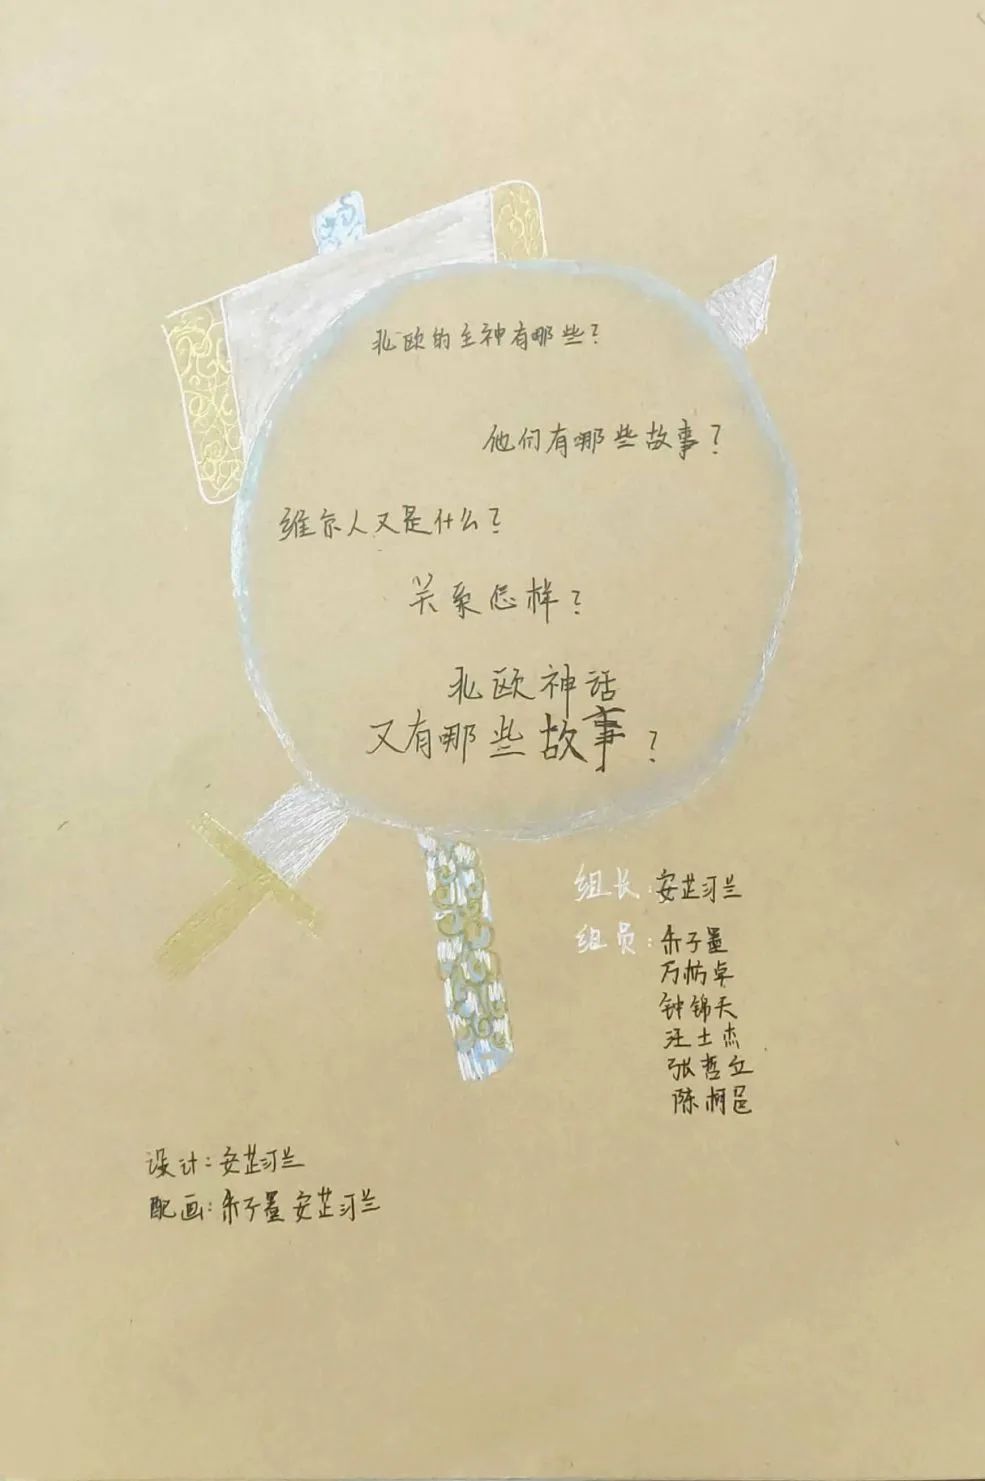 北欧的主神有哪些?
他们有哪些故事?
维尔人又是什么?
关系怎样?
北欧神话
又有哪些故事?
组长:安芷汀兰
组员:朱子墨
万枋卓
钟锦天
汪士杰
张哲立
陈柯邑
设计:安芷汀兰
配画:朱子墨 安芷汀兰